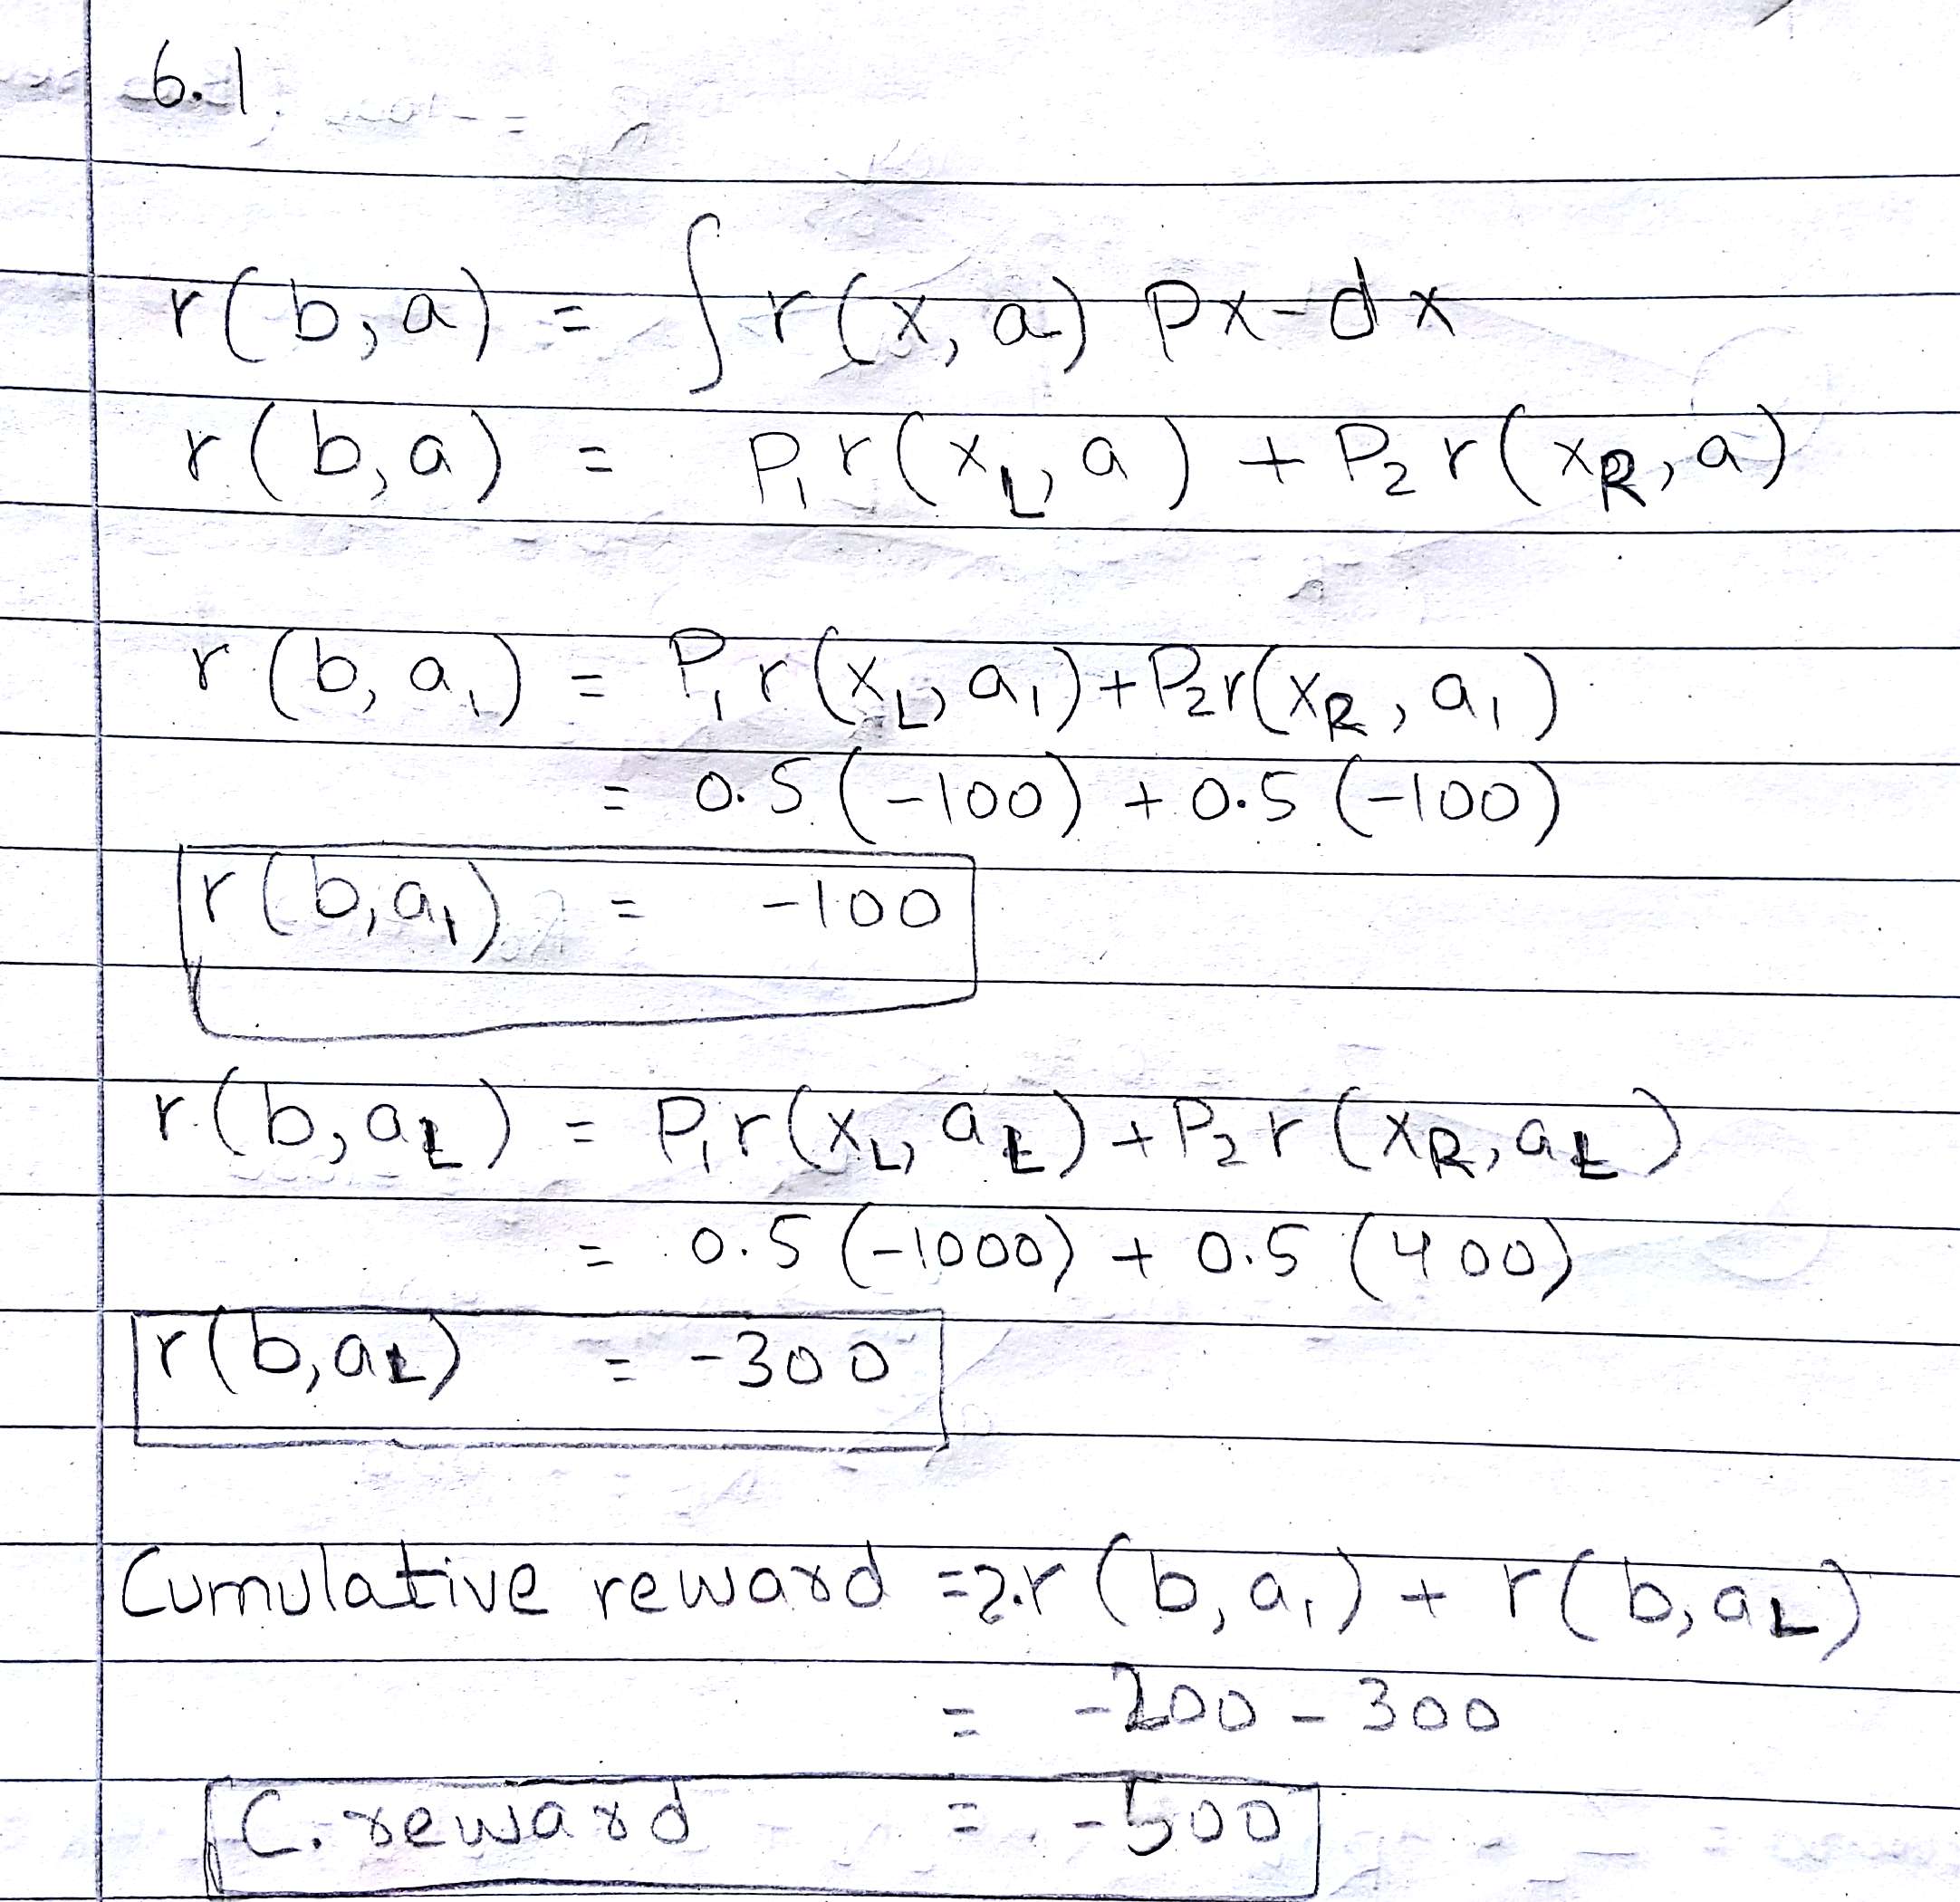 6.1
r(b,a) = ∫ r(x,a) px-dx
r(b,a) = P₁r(x_L, a) + P₂r(x_R, a)
r(b,a₁) = P₁r(x_L, a₁)+P₂r(x_R, a₁)
= 0.5(-100) + 0.5(-100)
r(b,a₁) = -100
r(b,a_L) = P₁r(x_L, a_L)+P₂r(x_R, a_L)
= 0.5(-1000) + 0.5(400)
r(b,a_L) = -300
Cumulative reward =2.r(b,a₁) + r(b,a_L)
= -200 - 300
C. reward = -500